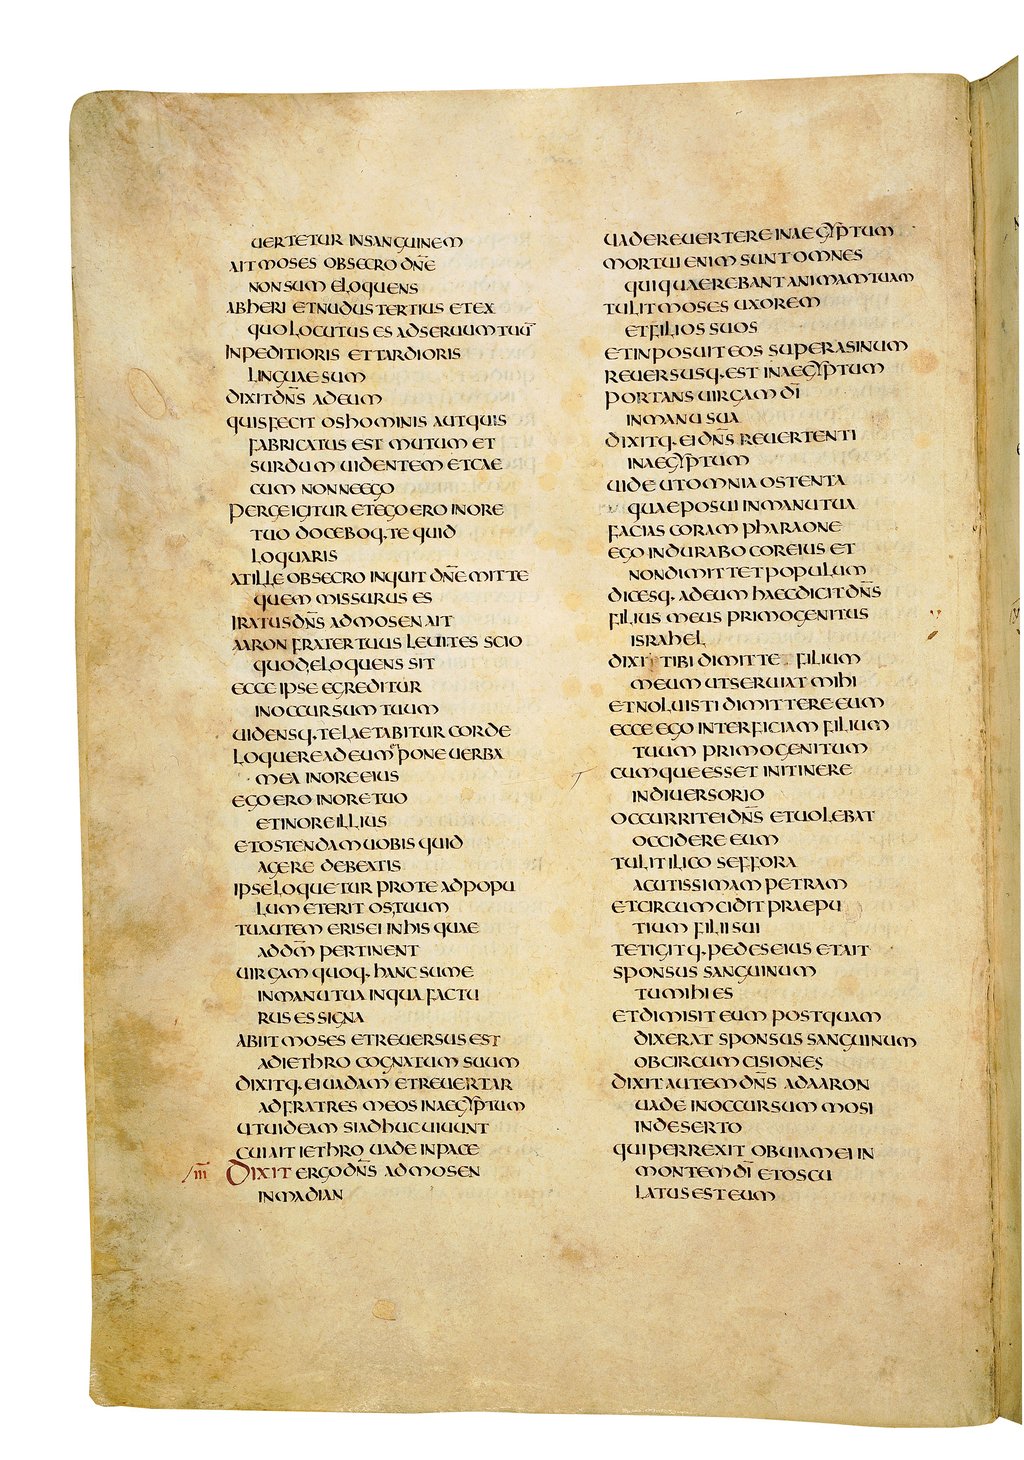 UERTETUR IN SANGUINEM
AIT MOSES OBSECRO DN̄E
NON SUM ELOQUENS
AB HERI ET NUDUS TERTIUS ET EX
QUO LOCUTUS ES AD SERUUM TUŪ
INPEDITIORIS ET TARDIORIS
LINGUAE SUM
DIXIT DN̄S AD EUM
QUIS FECIT OS HOMINIS AUT QUIS
FABRICATUS EST MUTUM ET
SURDUM UIDENTEM ET CAE
CUM NONNE EGO
PERGE IGITUR ET EGO ERO IN ORE
TUO DOCEBOQ· TE QUID
LOQUARIS
AT ILLE OBSECRO INQUIT DN̄E MITTE
QUEM MISSURUS ES
IRATUS DN̄S AD MOSEN AIT
AARON FRATER TUUS LEUITES SCIO
QUOD ELOQUENS SIT
ECCE IPSE EGREDITUR
IN OCCURSUM TUUM
UIDENSQ· TE LAETABITUR CORDE
LOQUERE AD EUM PONE UERBA
MEA IN ORE EIUS
EGO ERO IN ORE TUO
ET IN ORE ILLIUS
ET OSTENDAM UOBIS QUID
AGERE DEBEATIS
IPSE LOQUETUR PRO TE AD POPU
LUM ET ERIT OS TUUM
TU AUTEM ERIS EI IN HIS QUAE
AD DM̄ PERTINENT
UIRGAM QUOQ· HANC SUME
IN MANU TUA IN QUA FACTU
RUS ES SIGNA
ABIIT MOSES ET REUERSUS EST
AD IETHRO COGNATUM SUUM
DIXITQ· EI UADAM ET REUERTAR
AD FRATRES MEOS IN AEGYPTUM
UT UIDEAM SI ADHUC UIUUNT
CUI AIT IETHRO UADE IN PACE
IIĪ DIXIT ERGO DN̄S AD MOSEN
IN MADIAN
UADE REUERTERE IN AEGYPTUM
MORTUI ENIM SUNT OMNES
QUI QUAEREBANT ANIMAM TUAM
TULIT MOSES UXOREM
ET FILIOS SUOS
ET INPOSUIT EOS SUPER ASINUM
REUERSUSQ· EST IN AEGYPTUM
PORTANS UIRGAM DĪ
IN MANU SUA
DIXITQ· EI DN̄S REUERTENTI
IN AEGYPTUM
UIDE UT OMNIA OSTENTA
QUAE POSUI IN MANU TUA
FACIAS CORAM PHARAONE
EGO INDURABO COR EIUS ET
NON DIMITTET POPULUM
DICESQ· AD EUM HAEC DICIT DN̄S
FILIUS MEUS PRIMOGENITUS
ISRAHEL
DIXI TIBI DIMITTE FILIUM
MEUM UT SERUIAT MIHI
ET NOLUISTI DIMITTERE EUM
ECCE EGO INTERFICIAM FILIUM
TUUM PRIMOGENITUM
CUMQUE ESSET IN ITINERE
IN DIUERSORIO
OCCURRIT EI DN̄S ET UOLEBAT
OCCIDERE EUM
TULIT ILICO SEFFORA
ACUTISSIMAM PETRAM
ET CIRCUMCIDIT PRAEPU
TIUM FILII SUI
TETIGITQ· PEDES EIUS ET AIT
SPONSUS SANGUINUM
TU MIHI ES
ET DIMISIT EUM POSTQUAM
DIXERAT SPONSUS SANGUINUM
OB CIRCUMCISIONES
DIXIT AUTEM DN̄S AD AARON
UADE IN OCCURSUM MOSI
IN DESERTO
QUI PERREXIT OBUIAM EI IN
MONTEM DĪ ET OSCU
LATUS EST EUM